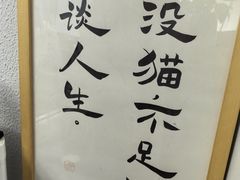 没猫不足
谈人生。